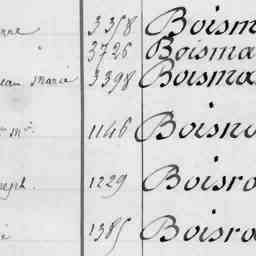 nne 3358 Boism
3726 Boisma
ean Marie 3398 Boisma
1146 Boisno
seph. 1229 Boisro
1385 Boisro